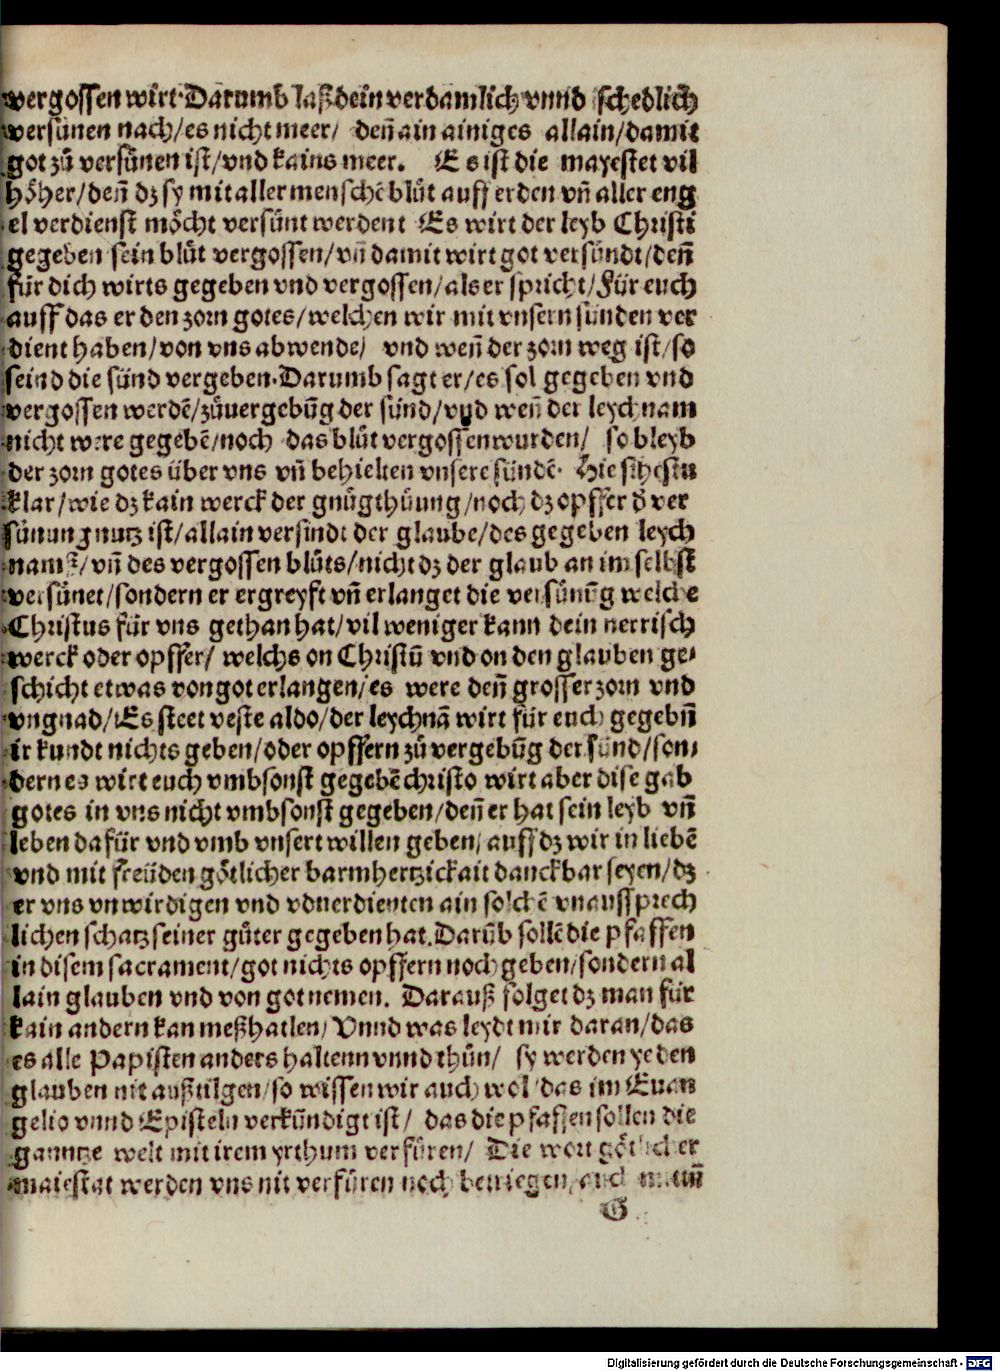 vergossen wirt·Darumb laß dein verdamlich vnnd schedlich
versünen nach/es nicht meer/ deñ ain ainiges allain/damit
got zů versünen ist/vnd kains meer. Es ist die mayestet vil
höher/deñ dz sy mit aller menschẽ blůt auff erden vñ aller eng
el verdienst möcht versünt werden t Es wirt der leyb Christi
gegeben sein blůt vergossen/vñ damit wirt got versündt/deñ
für dich wirts gegeben vnd vergossen/als er spricht/Für euch
auff das er den zorn gotes/welchen wir mit vnsern sünden ver
dient haben/von vns abwende/ vnd weñ der zorn weg ist/so
seind die sünd vergeben·Darumb sagt er/es sol gegeben vnd
vergossen werdẽ/zůuergebũg der sünd/vnd weñ der leychnam
nicht were gegebẽ/noch das blůt vergossen wurden/ so bleyb
der zorn gotes über vns vñ behielten vnsere sündẽ· Hie sihestu
klar/wie dz kain werck der gnůgthůung/noch dz opffer d̕ ver
sünung nutz ist/allain versündt der glaube/des gegeben leych
nams/vñ des vergossen blůts/nicht dz der glaub an im selbst
versünet/sondern er ergreyft vñ erlanget die versünũg welche
Christus für vns gethan hat/vil weniger kann dein nerrisch
werck oder opffer/ welchs on Christũ vnd on den glauben ge⸗
schicht etwas von got erlangen/es were deñ grosser zorn vnd
vngnad/Es steet veste aldo/der leychnã wirt für euch gegebñ
ir kundt nichts geben/oder opffern zů vergebũg der sünd/son⸗
dern es wirt euch vmbsonst gegebẽ christo wirt aber dise gab
gotes in vns nicht vmbsonst gegeben/deñ er hat sein leyb vñ
leben dafür vnd vmb vnsert willen geben/auff dz wir in liebẽ
vnd mit freüden götlicher barmhertzickait danckbar seyen/dz
er vns vnwirdigen vnd vduerdienten ain solchẽ vnaussprech
lichen schatz seiner gůter gegeben hat.Darũb sollẽ die pfaffen
in disem sacrament/got nichts opffern noch geben/sondern al
lain glauben vnd von got nemen. Darauß folget dz man für
kain andern kan meßhatlen/Vnnd was leydt mir daran/das
es alle Papisten anders haltenn vnnd thůn/ sy werden yeden
glauben nit außtilgen/so wissen wir auch wol das im Euan
gelio vnnd Episteln verkündigt ist/ das die pfaffen sollen die
ganntze welt mit irem yrthum verfüren/ Die wort götlicher
maiestat werden vns nit verfüren noch betriegen/
G
Digitalisierung gefördert durch die Deutsche Forschungsgemeinschaft - DFG